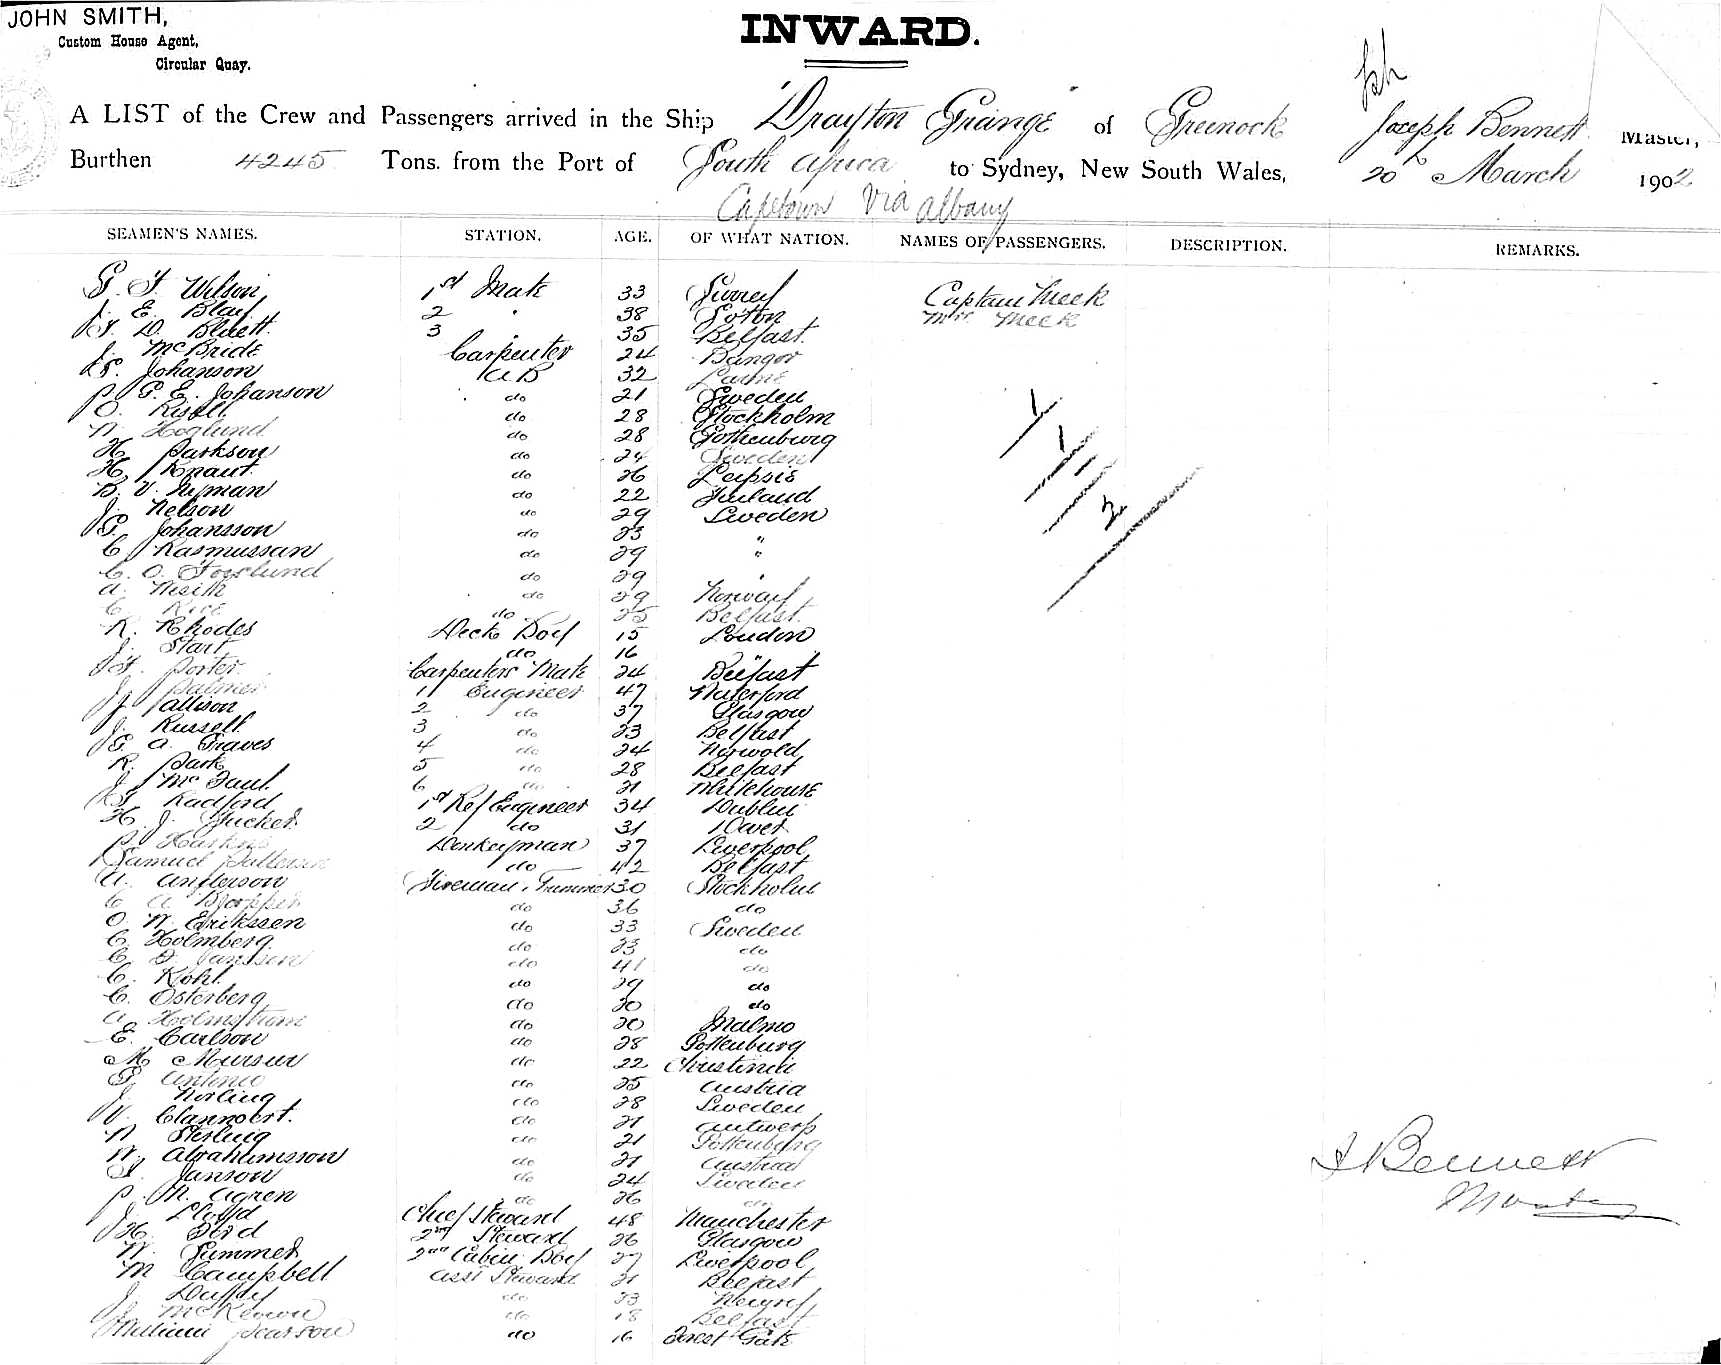 JOHN SMITH,
Custom House Agent,
Circular Quay.
INWARD.
A LIST of the Crew and Passengers arrived in the Ship "Drayton Grange" of Greenock Joseph Bennett Master,
Burthen 4245 Tons. from the Port of South Africa to Sydney, New South Wales, 20th March 1902
Capetown Via Albany
SEAMEN'S NAMES. STATION. AGE. OF WHAT NATION. NAMES OF PASSENGERS. DESCRIPTION. REMARKS.
Wilson 1st Mate 33 Surrey Captain Meek
J. E. Blay 2 " 38 Soton Mrs Meek
D. Bluett 3 35 Belfast
J. McBride Carpenter 24 Bangor
Johanson AB 32 Larne
P. G. E. Johanson do 21 Sweden
O. do 28 Stockholm
N. Hoglund do 28 Gothenburg
H. Parkson do 24 Sweden
H. Knaut do 26 Leipsic
B. V. Nyman do 22 Finland
J. Nelson do 29 Sweden
G. Johansson do 23 "
C. Rasmussan do 29 "
C. O. do 29 "
A. do 29 Norway
C. Rice do 25 Belfast
R. Rhodes Deck Boy 15 London
J. Start do 16 "
Porter Carpenters Mate 24 Belfast
J. Palmer 1 Engineer 47 Waterford
J. Allison 2 do 37 Glasgow
J. Russell 3 do 23 Belfast
G. A. Graves 4 do 24 Norwold
R. Park 5 do 28 Belfast
J. McFaul 6 do 21 Whitehouse
Radford 1st Ref Engineer 34 Dublin
H. J. Tucker 2 do 31 Dover
P. Haskins Donkeyman 37 Liverpool
Samuel Patterson do 42 Belfast
A. Anderson Fireman & Trimmer 30 Stockholm
C. A. do 36 do
O. W. Erikssen do 33 Sweden
C. Holmberg do 23 do
C. Jansson do 41 do
C. Kohl do 29 do
C. Osterberg do 20 do
A. Holmstrom do 20 Malmo
E. Carlson do 28 Gottenburg
M. do 22 Christinia
Antonio do 25 Austria
J. Norling do 28 Sweden
V. Clannoert. do 21 Antwerp
N. Sterling do 21 Gottenberg
N. Abrahamsson do 21 Austria
Janson do 24 Sweden
P. M. Agren do 26 do
J. Lloyd Chief Steward 48 Manchester
H. Ford 2nd Steward 26 Glasgow
W. Summer 2nd Cabin Boy 27 Liverpool
M Campbell Asst Steward 21 Belfast
J. Duffy do 23 Newry
J. McKeown do 18 Belfast
William Pearson do 16 Forest Gate
1
1
1
2
J Bennett
Master